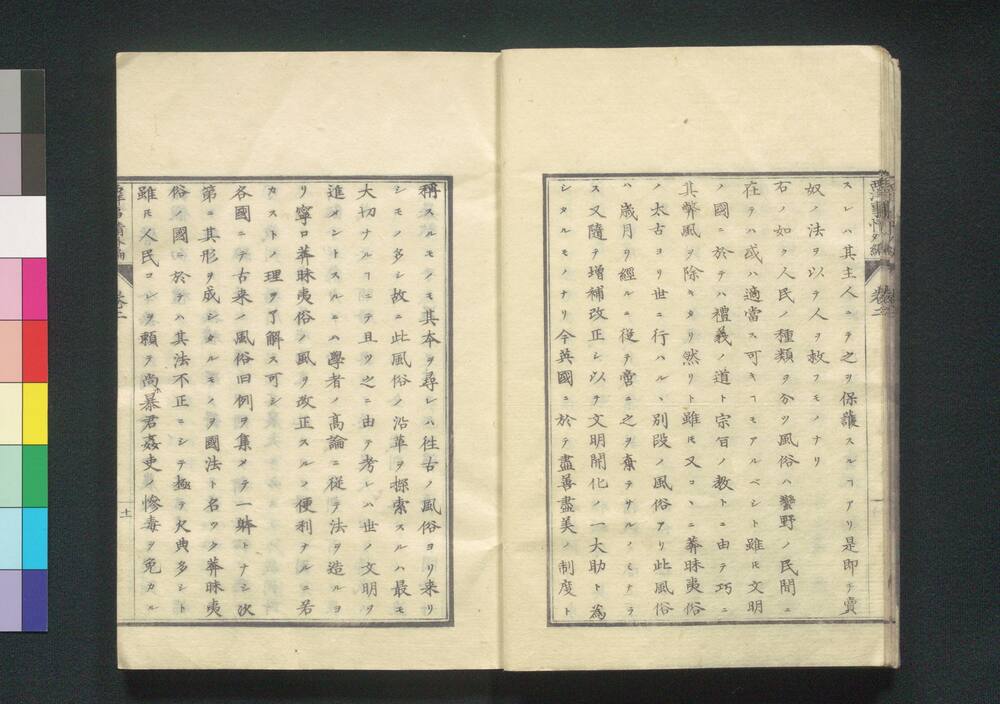 スレハ其主人ニテ之ヲ保護スルヿアリ是即チ賣
奴ノ法ヲ以テ人ヲ救フモノナリ
右ノ如ク人民ノ種類ヲ分ツ風俗ハ蠻野ノ民間ニ
在テハ或ハ適當ス可キヿモアルベシト雖モ文明
ノ國ニ於テハ禮義ノ道ト宗旨ノ教トニ由テ巧ニ
其弊風ヲ除キタリ然リト雖モ又コヽニ莽昧夷俗
ノ太古ヨリ世ニ行ハルヽ別段ノ風俗アリ此風俗
ハ歳月ヲ經ルニ従テ啻ニ之ヲ棄テサルノミナラ
ス又隨テ増補改正シ以テ文明開化ノ一大助ト為
シタルモノナリ今英國ニ於テ盡善盡美ノ制度ト
稱スルモノモ其本ヲ尋レハ往古ノ風俗ヨリ来リ
シモノ多シ故ニ此風俗ノ沿革ヲ探索スルハ最モ
大切ナルヿニテ且ツ之ニ由テ考レハ世ノ文明ヲ
進メントスルニハ學者ノ高論ニ従テ法ヲ造ルヨ
リ寧ロ莽昧夷俗ノ風ヲ改正スルノ便利ナルニ若
カストノ理ヲ了解ス可シ
各國ニテ古来ノ風俗旧例ヲ集メテ一躰トナシ次
第ニ其形ヲ成シタルモノヲ國法ト名ツク莽昧夷
俗ノ國ニ於テハ其法不正ニシテ極テ欠典多シト
雖モ人民コレヲ頼テ尚ホ暴君姦吏ノ惨毒ヲ免カル
巻之二
十一